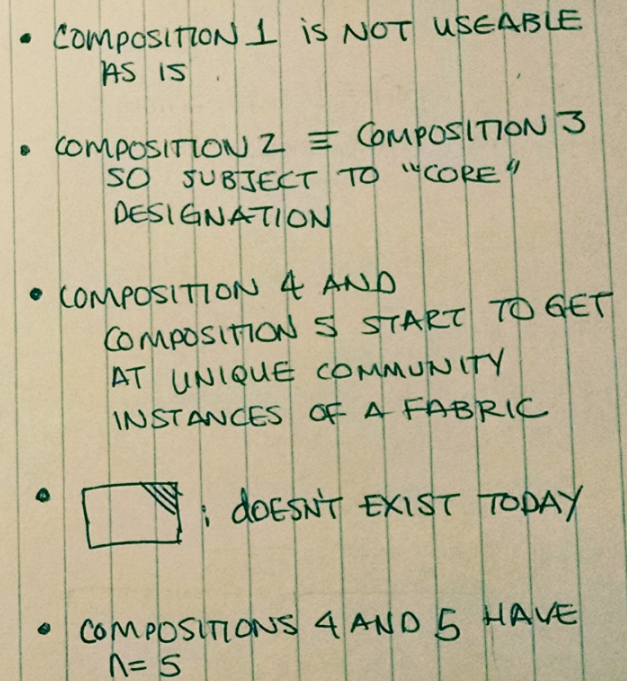 • COMPOSITION 1 is NOT USEABLE
AS IS
• COMPOSITION 2 ≡ COMPOSITION 3
SO SUBJECT TO "CORE"
DESIGNATION
• COMPOSITION 4 AND
COMPOSITION 5 START TO GET
AT UNIQUE COMMUNITY
INSTANCES OF A FABRIC
• ; dOESN'T EXIST TODAY
• COMPOSITIONS 4 AND 5 HAVE
n= 5